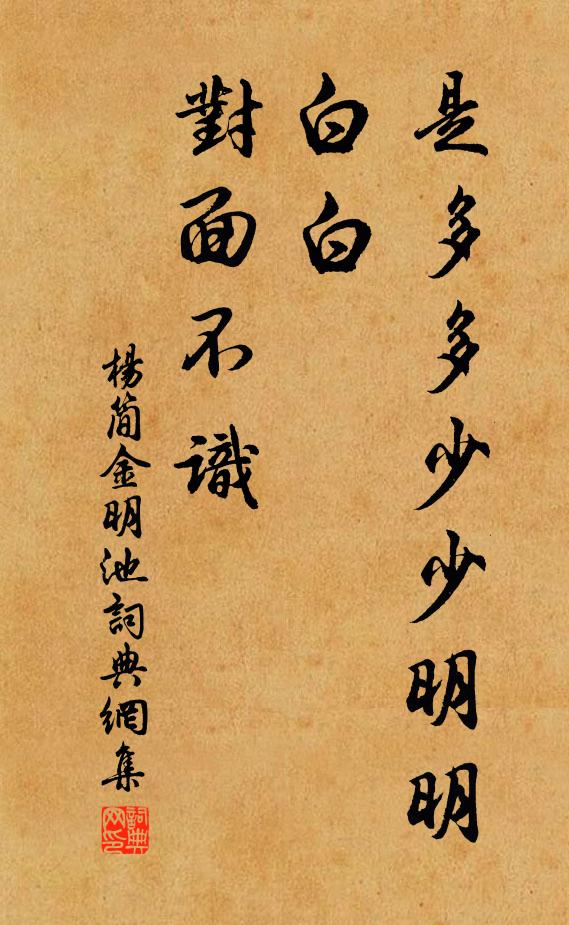 是多多少少明明
白白
對面不識
楊簡金明池詞典網集
詞典
网印